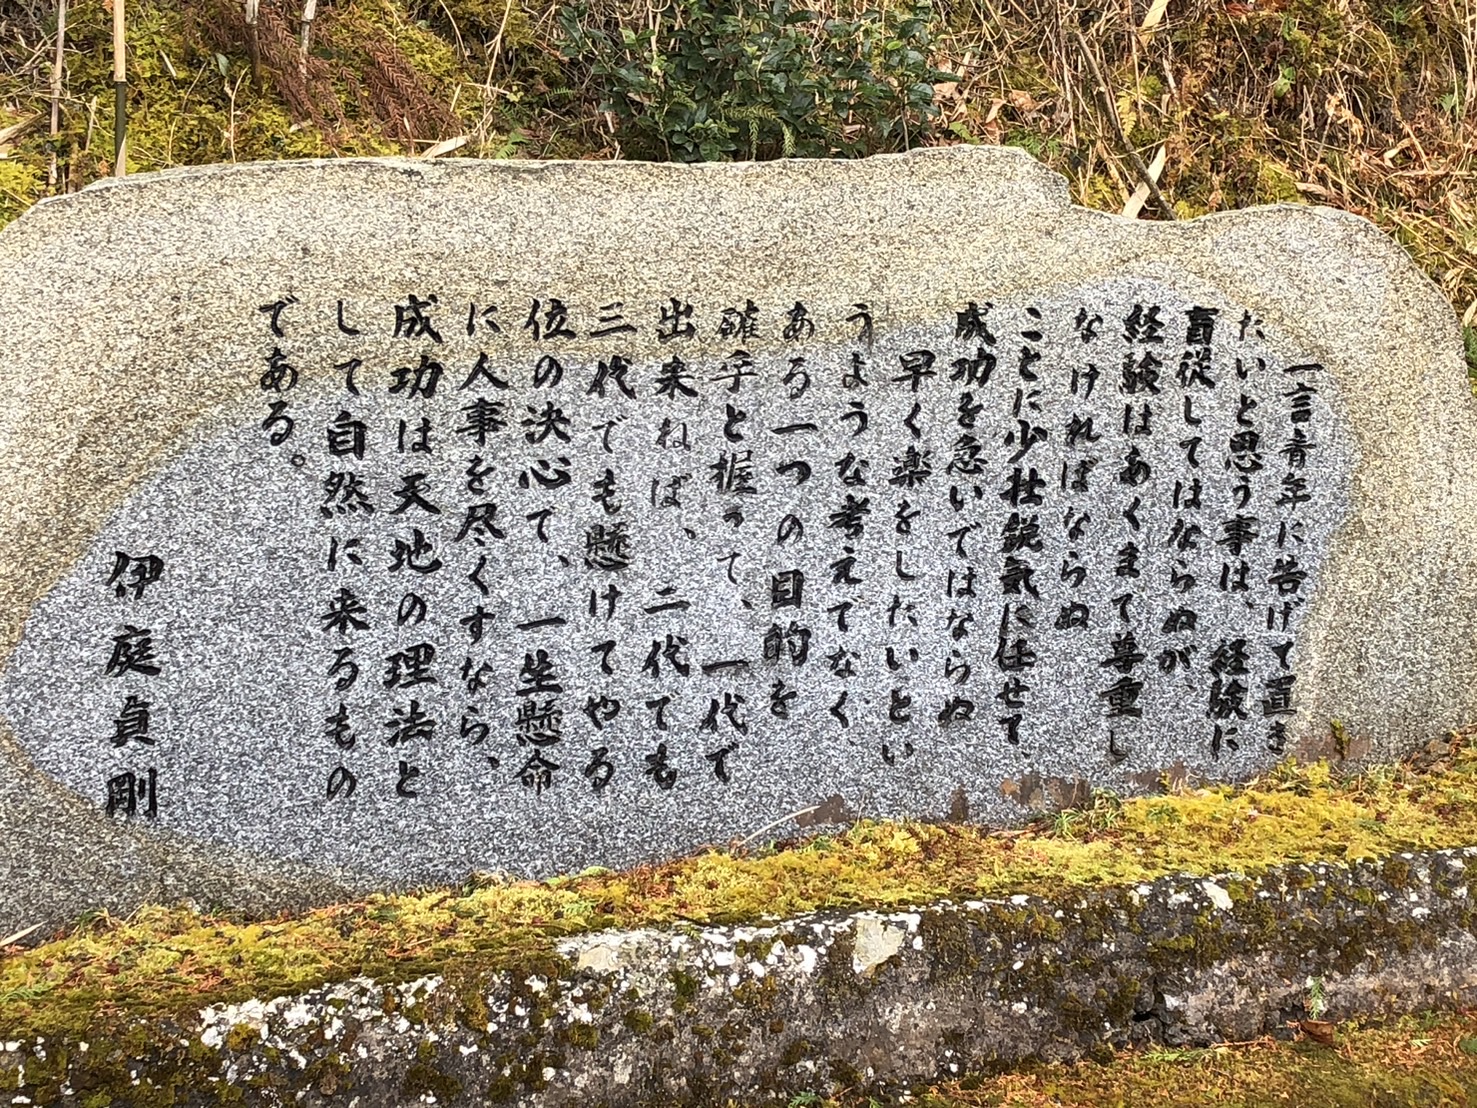 一言青年に告げて置き
たいと思う事は、経験に
盲従してはならぬが、
経験はあくまで尊重し
なければならぬ
ことに少壮鋭気に任せて、
成功を急いではならぬ
早く楽をしたいとい
うような考えでなく
ある一つの目的を
確乎と握って、一代で
出来ねば、二代でも
三代でも懸けてやる
位の決心で、一生懸命
に人事を尽くすなら、
成功は天地の理法と
して自然に来るもの
である。
伊庭貞剛